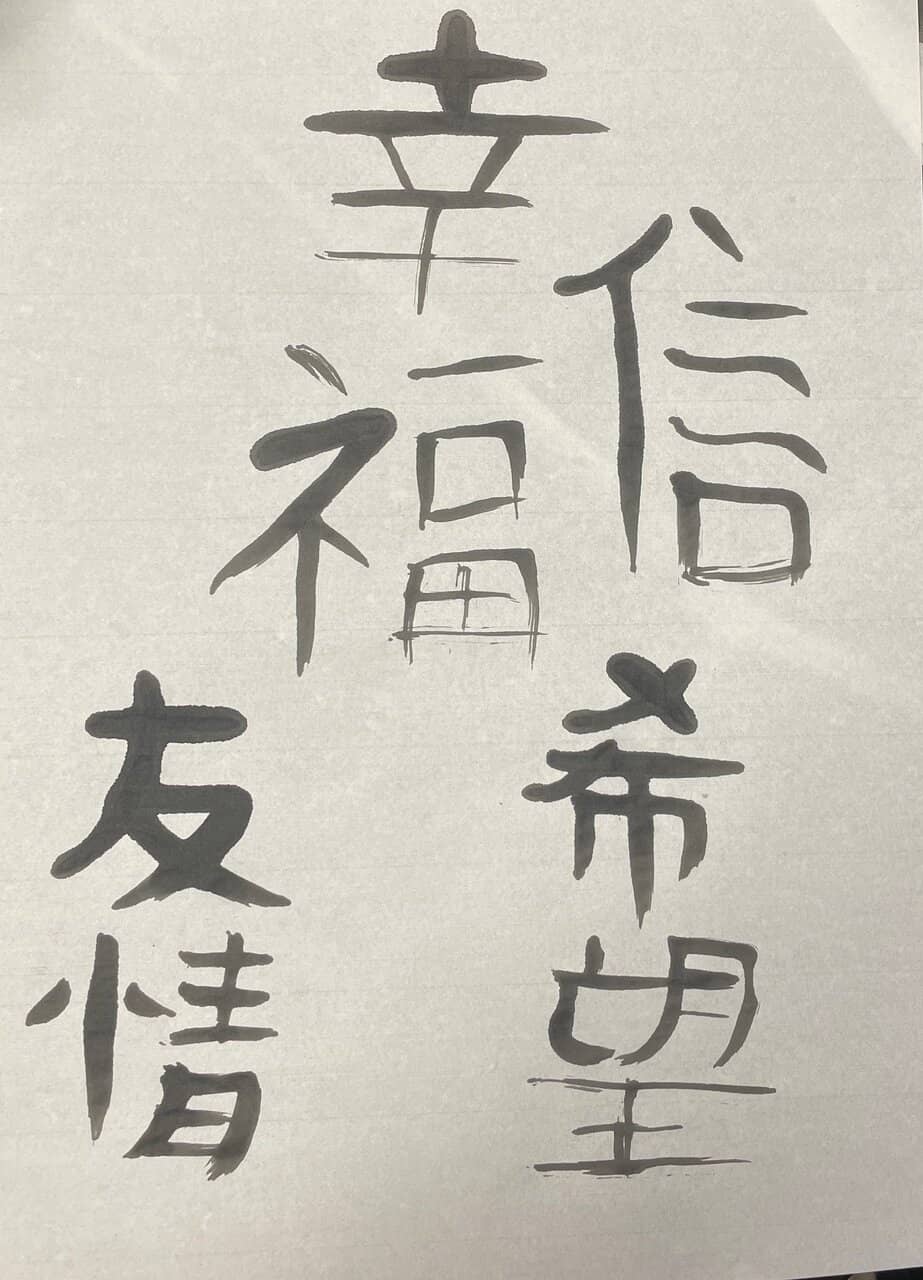 幸福
信
友情
希望